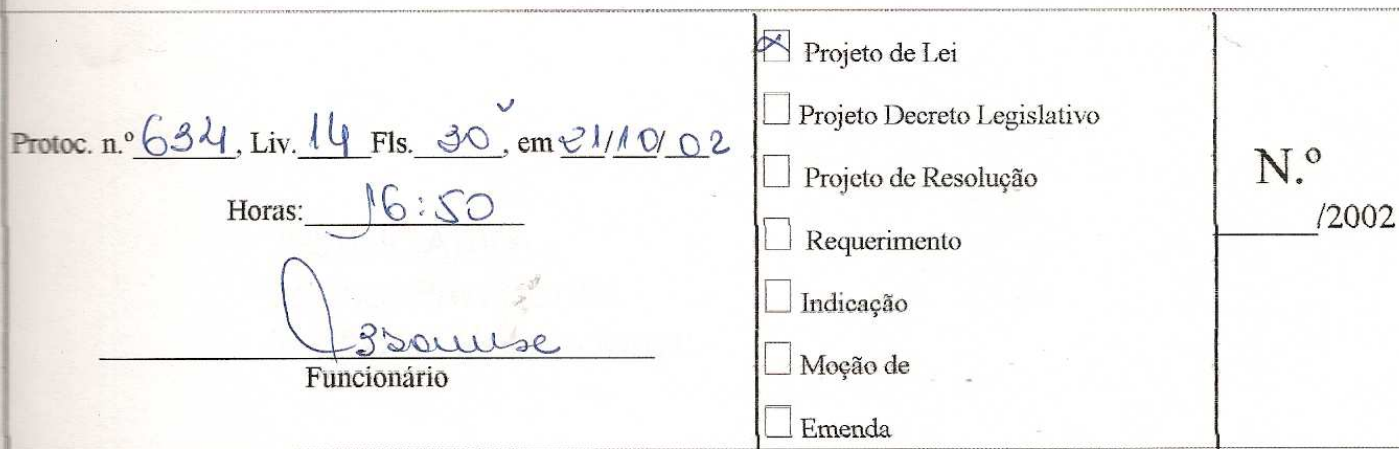 Protoc. n.º 634, Liv. 14 Fls. 30, em 21/10/02
Horas: 16:50
Funcionário
Projeto de Lei
Projeto Decreto Legislativo
Projeto de Resolução
Requerimento
Indicação
Moção de
Emenda
N.º
/2002